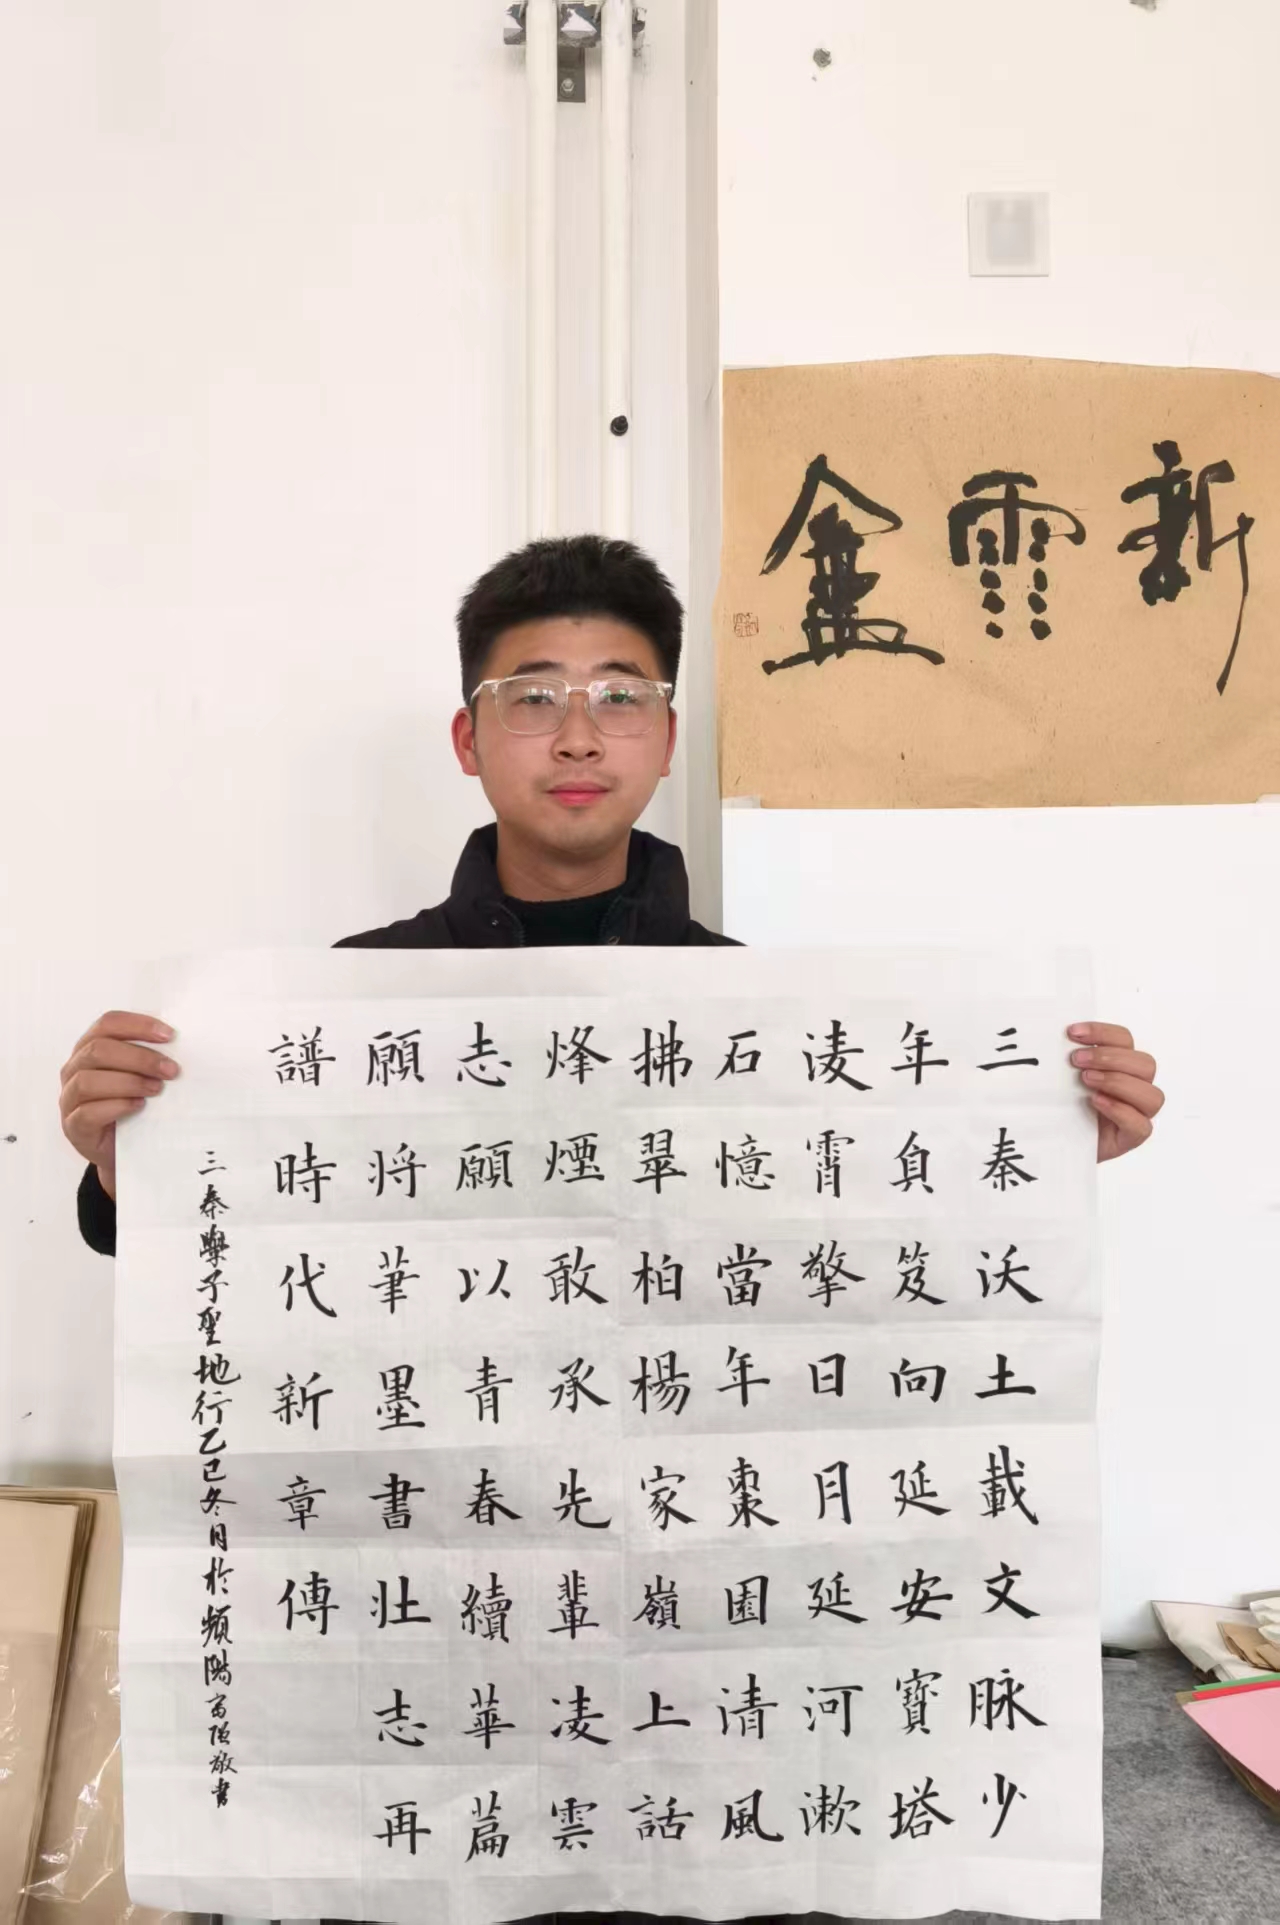 新雲盦
三秦沃土載文脉少
年負笈向延安寶塔
凌霄擎日月延河漱
石憶當年棗園清風
拂翠柏楊家嶺上話
烽煙敢承先輩凌雲
志願以青春續華篇
願将筆墨書壮志再
譜時代新章傳
三秦學子聖地行乙巳冬月於頻陽敬書